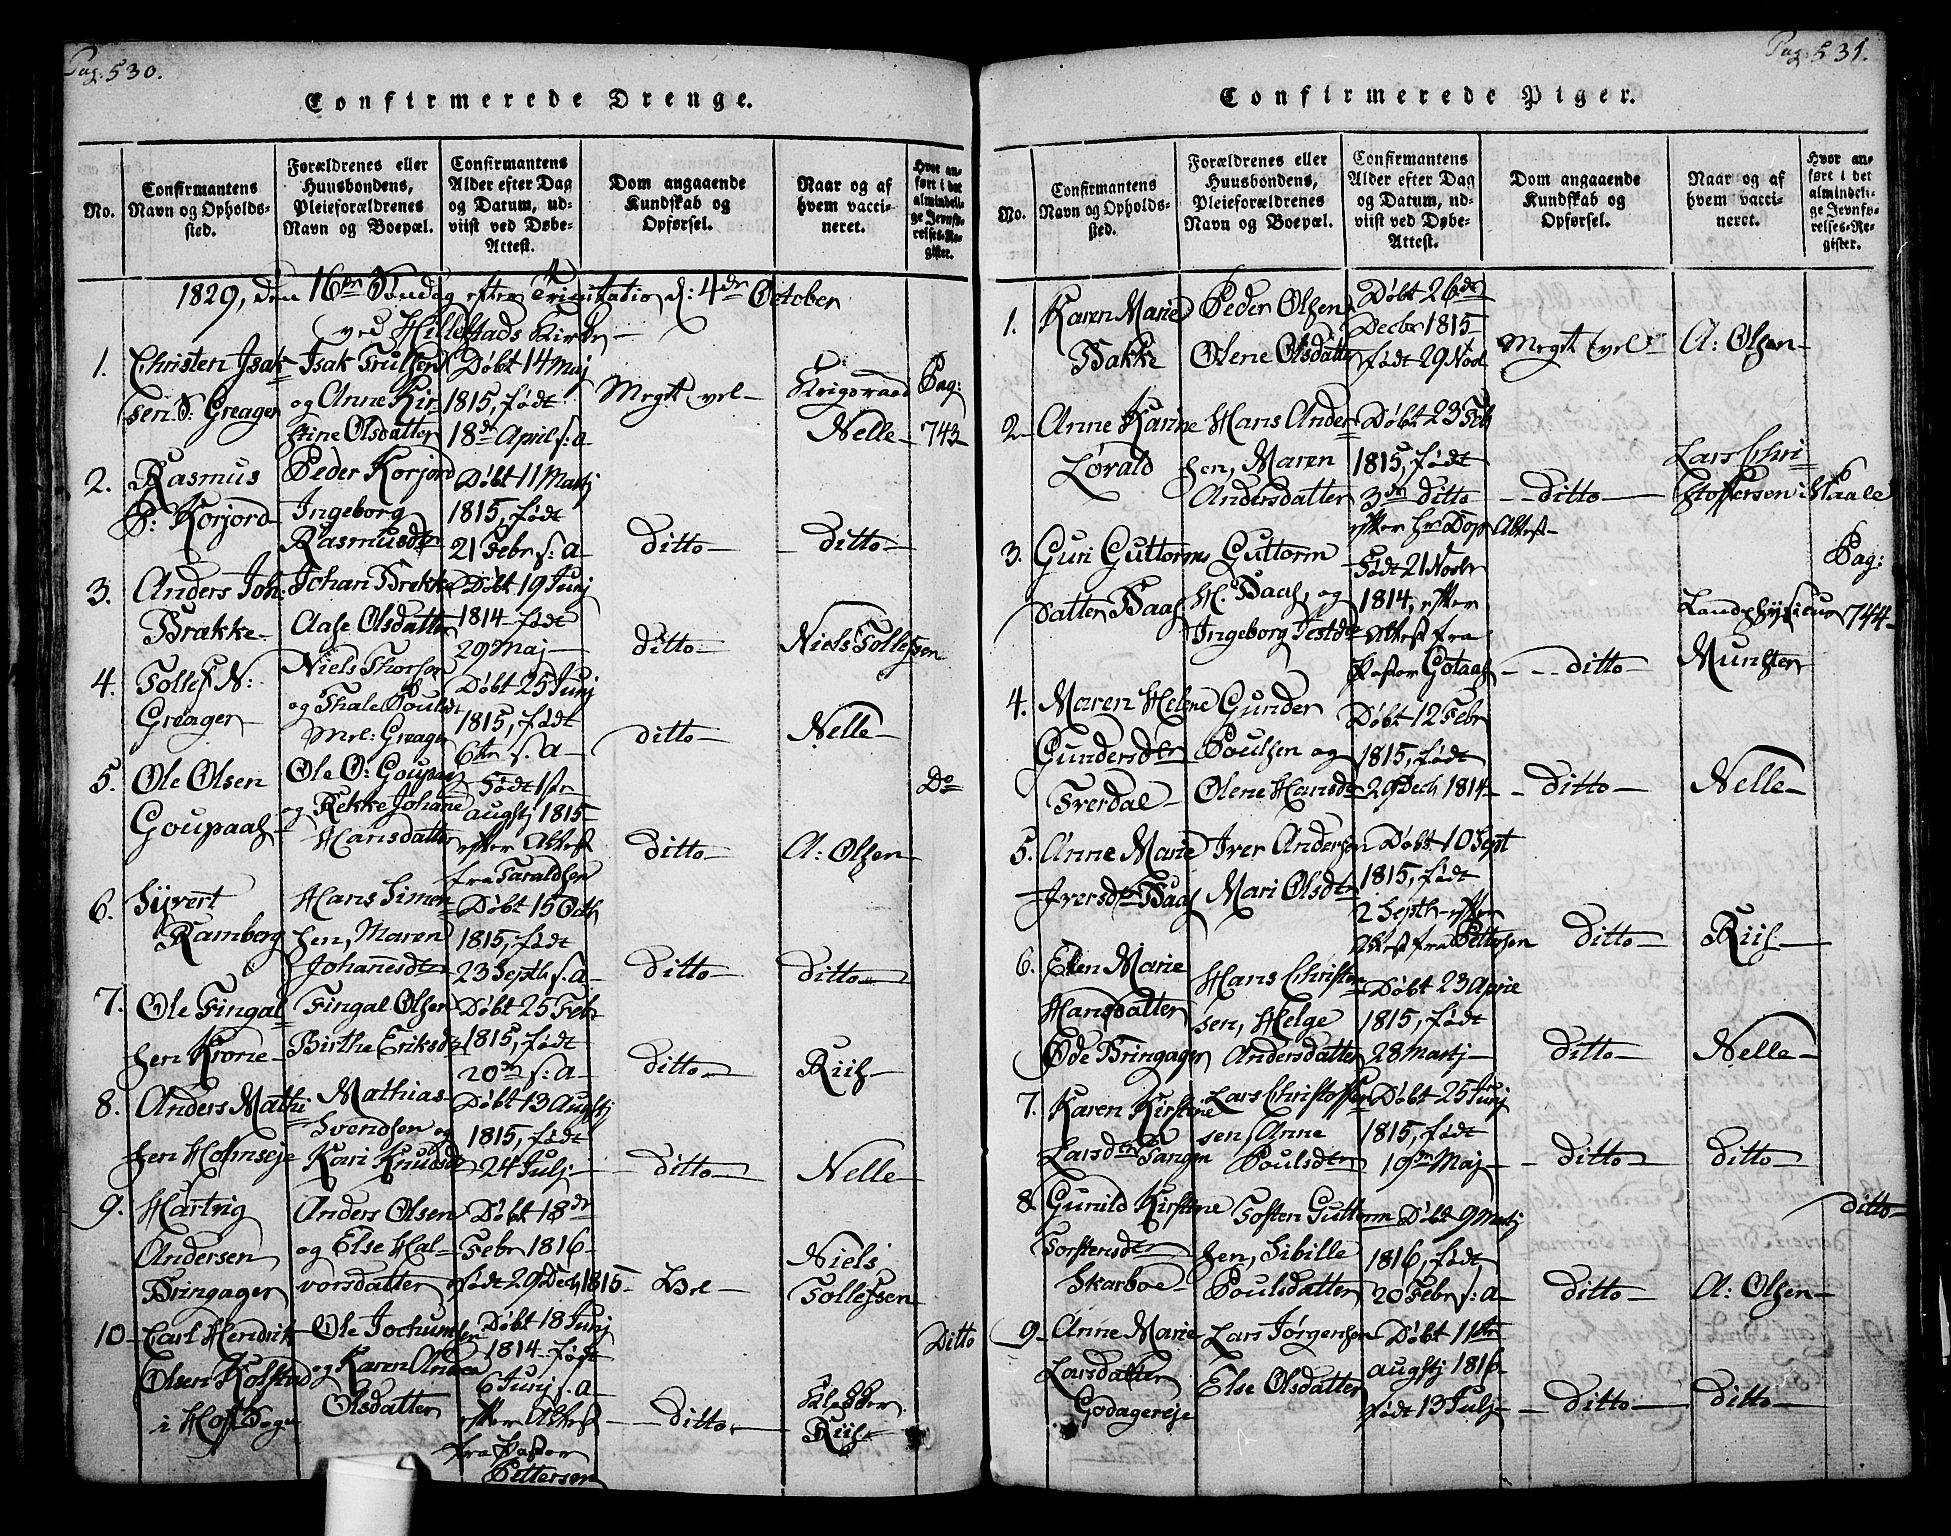 Pag. 530.
Confirmerede Drenge.
No.
Confirmantens Navn og Opholds-sted.
Forældrenes eller Huusbondens, Pleieforældrenes Navn og Boepæl.
Confirmantens Alder efter Dag og Datum, ud-viist ved Døbe-Attest.
Dom angaaende Kundskab og Opførsel.
Naar og af hvem vacci-neret.
Hvor an-ført i det almindeli-ge Jevnfø-relses-Re-gister.
1829, den 16de Søndag efter Trinitatis, d: 4de October
ved Hillestads Kirke
1. Christen Isak=
sen S: Greager
Isak Trulsen
og Anne Kir=
stine Olsdatter
Døbt 14 Maj
1815, født
18de April s: a
Meget vel
Krigsraad
Nelle
Pag:
743
2. Rasmus
P: Korjord
Peder Korjord
Ingeborg
Rasmusdtr
Døbt 11 Martj
1815, født
21 Febr s: a
ditto
ditto
3. Anders Joh:
Brække
Johan Brekke
Aase Olsdatter
Døbt 19 Junj
1814 født
29 Maj
ditto
Niels Tollefsen
4. Tollef N:
Greager
Niels Thorsen
og Thale Poulsdt
Greager
Døbt 25 Junj
1815, født
6te s. a
ditto
Nelle
5. Ole Olsen
Goupaas
Ole O: Goupaas
og Rekke Johane
Hansdatter
Født 1ste
augstj 1815
efter Attest
fra Taraldsen
ditto
A: Olsen
Do
6. Syvert
Ramberg
Hans Simon=
sen, Maren
Johanesdtr
Døbt 15 Octb
1815, født
23 Septb s. a
ditto
ditto
7. Ole Fingal=
sen Krone
Fingal Olsen
Birthe Eriksdtr
Døbt 25 Feb
1815, født
20de s: a
ditto
Riis
8. Anders Mathi=
sen Holmseje
Mathias
Svendsen og
Kari Knudsdt
Døbt 13 Augstj
1815, født
24 Julj
ditto
Nelle
9. Hartvig
Andersen
Bringager
Anders Olsen
og Else Hal=
vorsdatter
Døbt 18de
Febr 1816
født 29 Decb 1815
Niels
Tollefsen
10 Carl Hendrik
Olsen Kolstad
i Hofs Sogn
Ole Jochumsen
og Karen Andrea
Olsdatter
Døbt 18 Junj
1814 født
6 Junj s. a
efter Attest
fra Pastor
Pettersen
ditto
Klokker
Riis
Ditto
Pag. 531.
Confirmerede Piger.
No.
Confirmantens Navn og Opholds-sted.
Forældrenes eller Huusbondens, Pleieforældrenes Navn og Boepæl.
Confirmantens Alder efter Dag og Datum, ud-viist ved Døbe-Attest.
Dom angaaende Kundskab og Opførsel.
Naar og af hvem vacci-neret.
Hvor an-ført i det almindeli-ge Jevnfø-relses-Re-gister.
1. Karen Marie
Bakke
Peder Olsen
Olene Olsdatter
Døbt 26de
Decbr 1815
født 29 Nov
Meget vel
A: Olsen
2 Anne Karine
Lørald
Hans Ander=
sen, Maren
Andersdatter
Døbt 23 Feb
1815, født
3de ditto
efter Hr Dops Attest
ditto
Lars Chri=
stoffersen i Staale
3. Guri Guttorms
datter Baas
Guttorm
H. Baas, og
Ingeborg
Født 21 Novbr
1814, efter
Attest fra
Pastor Gotaas
ditto
Landphysicus
Munster
Pag:
744
4. Maren Helene
Gundersdtr
Sverdal
Gunder
Poulsen og
Olene Hansdtr
Døbt 12 Febr
1815, født
29 Decb 1814
ditto
Nelle
5. Anne Marie
Iversdtr Baas
Iver Andersen
Mari Olsdtr
Døbt 10 Sept
1815, født
2 Septb efter
Attest fra Pettersen
ditto
Riis
6. Elen Marie
Hansdatter
Øde Bringager
Hans Christen=
sen, Helge
Andersdatter
Døbt 23 April
1815, født
28 Martj
ditto
Nelle
7. Karen Kirstine
Larsdtr Tangen
Lars Christoffer
sen, Anne
Poulsdtr
Døbt 25 Junj
1815, født
19de Maj
ditto
ditto
8. Gunild Kirstine
Torstensdtr
Skarboe
Tosten Guttorm
sen, Sibille
Poulsdatter
Døbt 9 Martj
1816, født
20 Febr s: a
ditto
A: Olsen
ditto
9 Anne Marie
Larsdatter
Godagereje
Lars Jørgensen
Else Olsdatter
Døbt 11te
augstj 1816
født 13 Julj
ditto
ditto